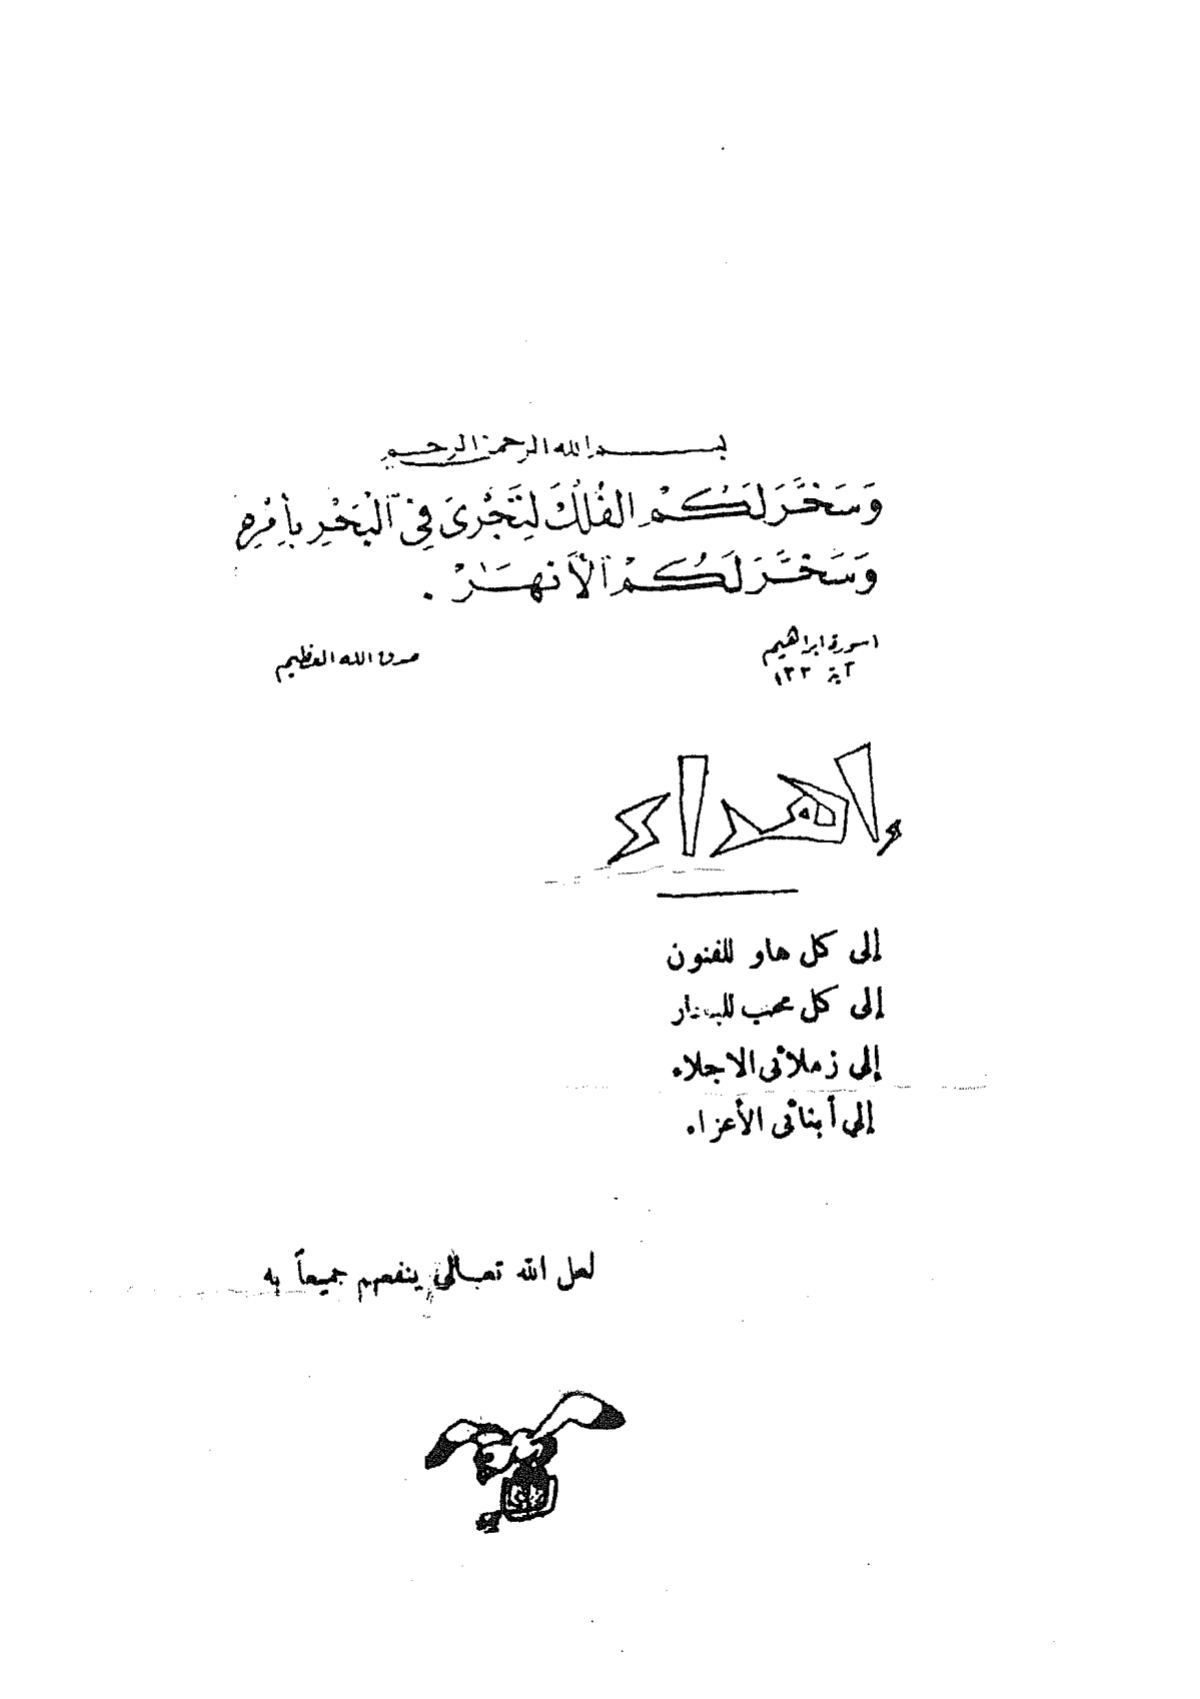 بسم الله الرحمن الرحيم
وَسَخَّرَ لَكُمُ الفُلْكَ لِتَجْرِىَ فِى ٱلْبَحْرِ بِأَمْرِهِ
وَسَخَّرَ لَكُمُ ٱلْأَنهَـٰرَ .
اسورة ابراهيم
صدق الله العظيم
آية ٣٢
إهداء
إلى كل هاو للفنون
إلى كل محب للبحار
إلى زملائى الاجلاء
إلى أبنائى الأعزاء
لعل الله تعالى ينفعهم جميعاً به